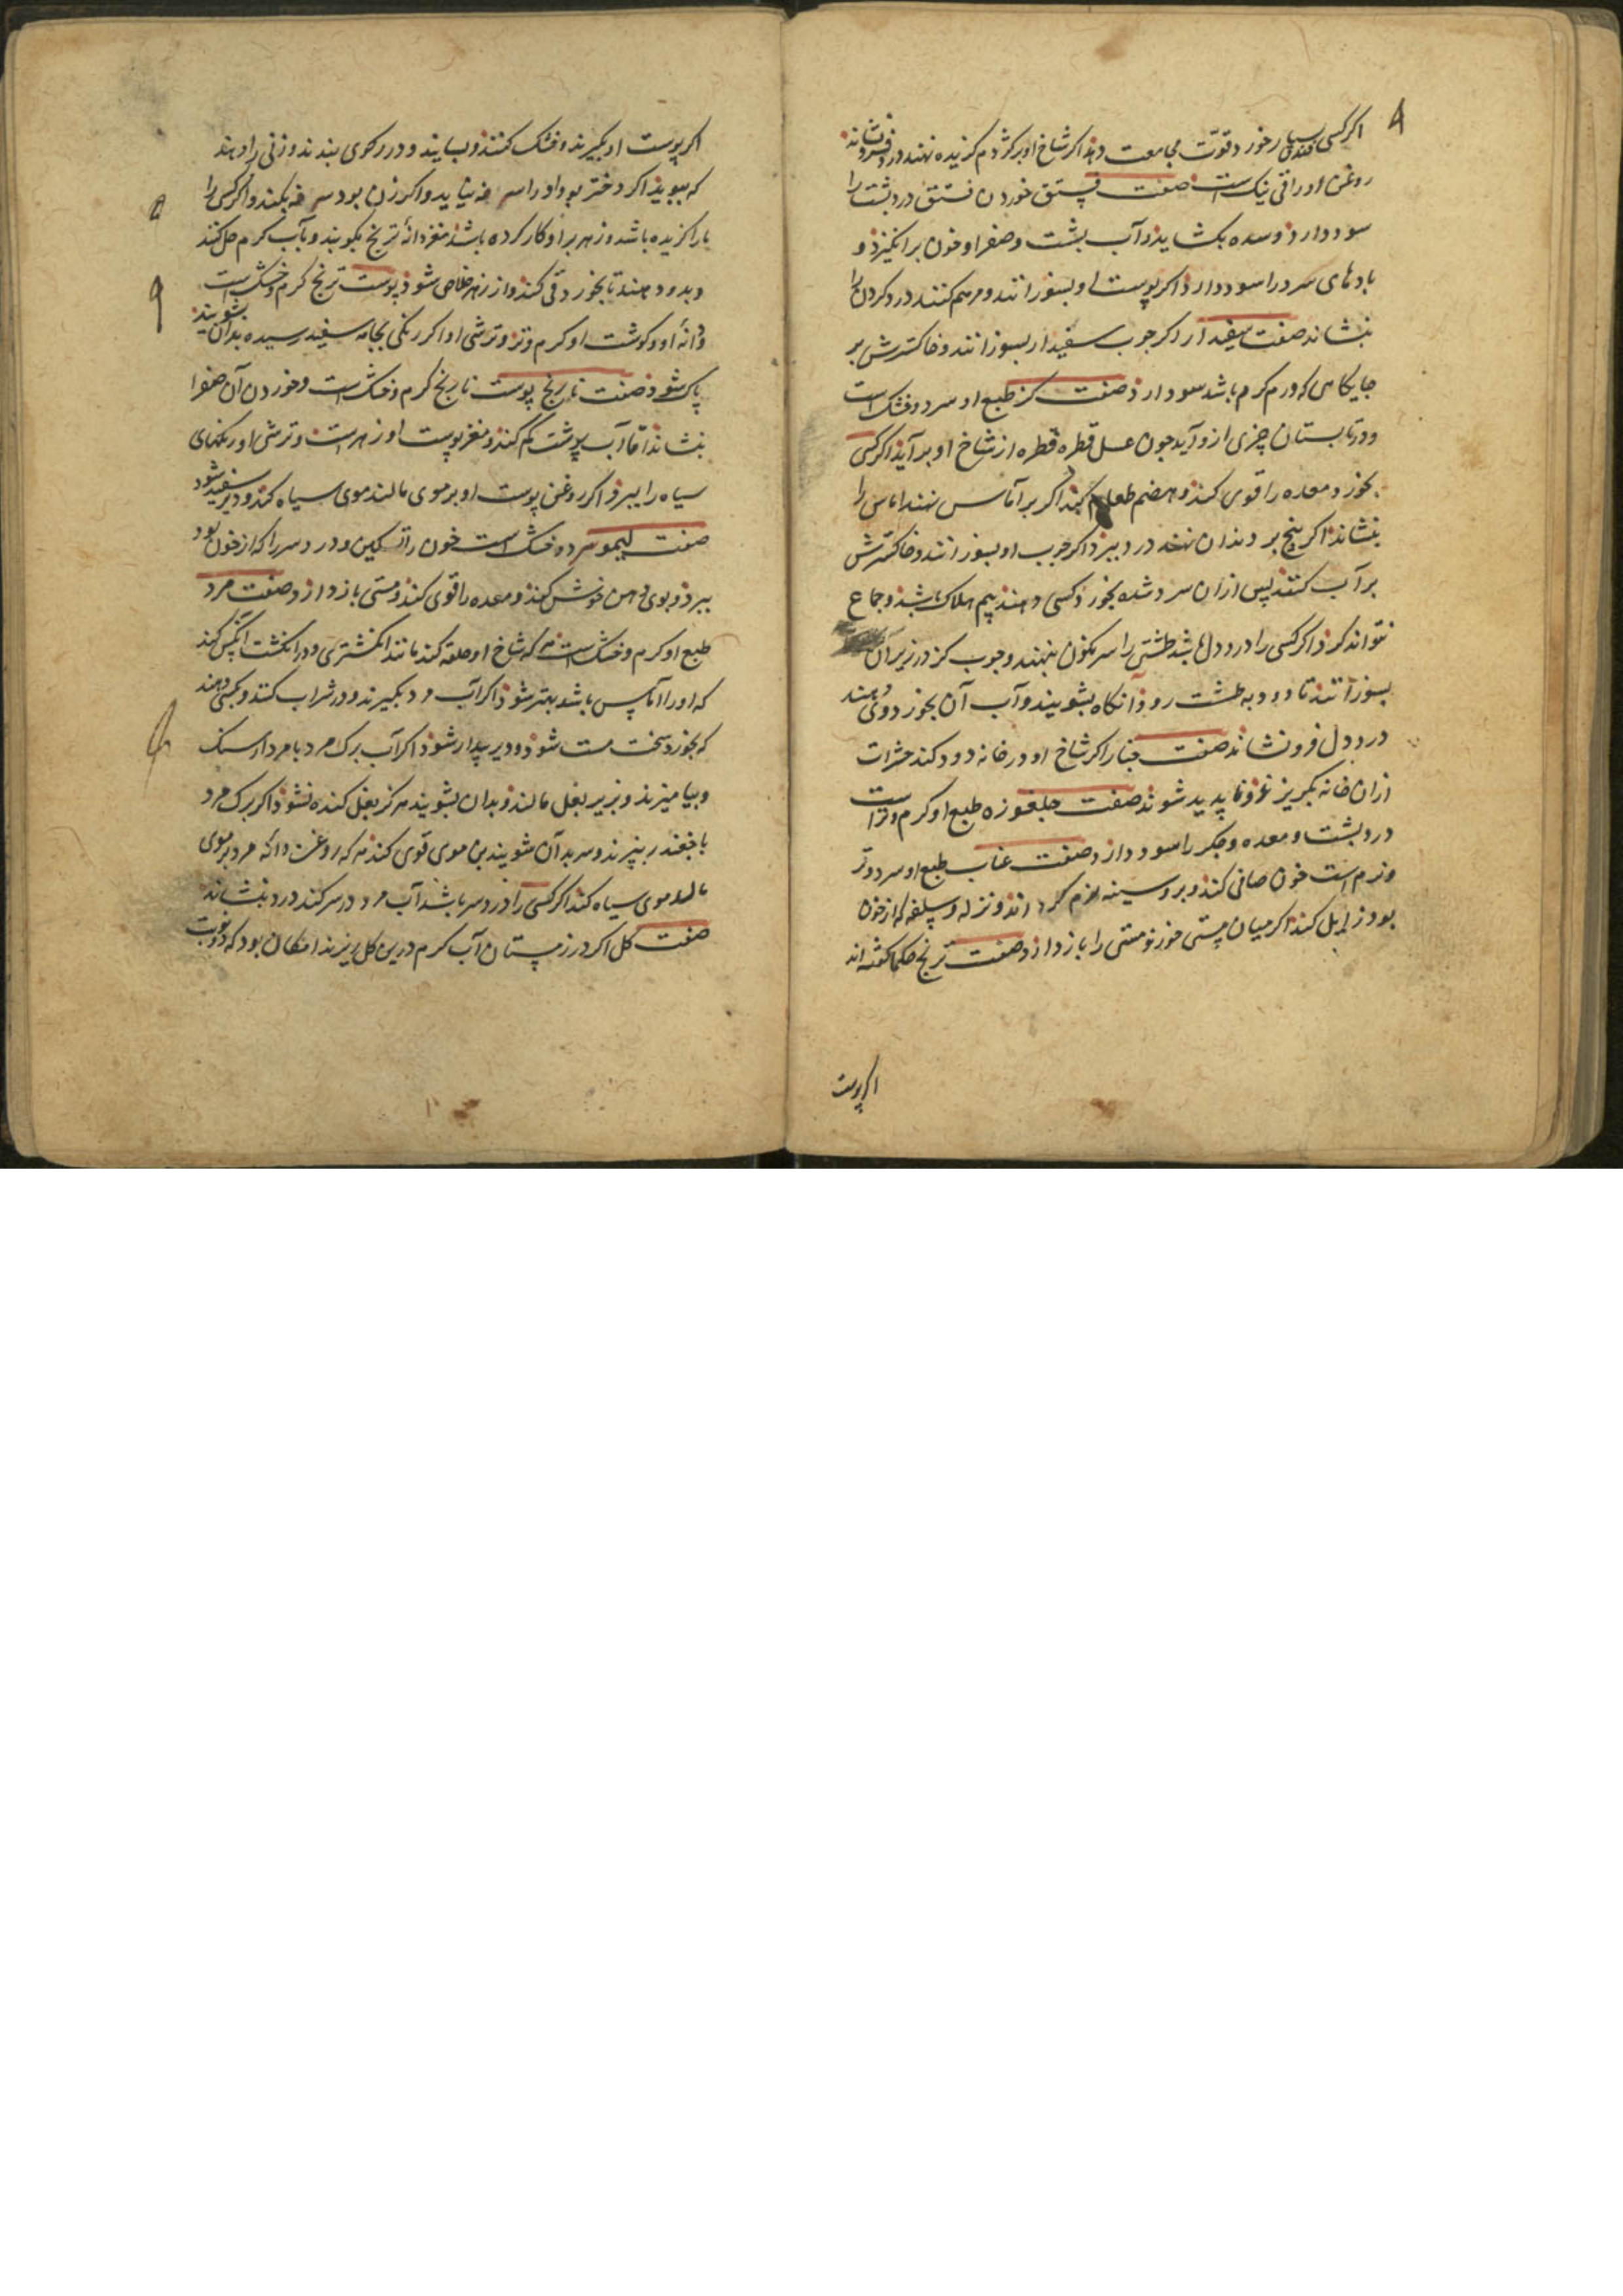 اکر کسی فندق بسیار خورد قوّت مجامعت دهد اکر شاخ او بر کژدم کزیده نهند درد فرو نشاند
روغن او راقی نیک است صفت فستق خوردن فستق درد پشت را
سود دارد و سده بکشاید و آب پشت و صفرا و خون برانکیزد و
بادهای سرد را سود دارد اکر پوست او بسوزانند و مرهم کنند درد کردن را
بنشاند صفت سفیدار اکر جوب سفیدار بسوزانند و خاکسترش بر
جایکاهی که ورم کرم باشد سود دارد صفت کز طبع او سرد و خشک است
و در تابستان چیزی ازو آید جون عسل قطره قطره از شاخ او برآید اکر کسی
بخورد معده را قوی کند و هضم طعام کند اکر بر آماس نهند اماس را
بنشاند اکر بیخ بر دندان نهند درد ببرد اکر جوب او بسوزانند و خاکسترش
بر آب کنند پس ازان سرد شده بخورد کسی دهند بیم هلاک باشد و جماع
نتواند کرد اکر کسی را درد دل باشد طشتی را سرنکون بنهند و جوب کز در زیر آن
بسوزانند تا دود به طشت رود آنکاه بشویند و آب آن بخورد وی دهند
درد دل فرو نشاند صفت چنار اکر شاخ او در خانه دود کند حشرات
ازان خانه بکریزند و ناپدید شوند صفت جلغوزه طبع او کرم و تر است
درد پشت و معده و جکر را سود دارد صفت عناب طبع او سرد و تر
و نرم است خون صافی کند و بر و سینه نرم کرداند و نزله و سلفه که از خون
بود زایل کند اکر میان مستی خورند مستی را باز دارد صفت ترنج حکما کفته اند
اکر پوست
اکر پوست او بکیرند و خشک کنند و بسایند و در رکوی بندند و زنی را دهند
که ببوید اکر دختر بود او را سرفه نیاید و اکر زن بود سرفه بکند و اکر کسی را
مار کزیده باشد و زهر بر او کار کرده باشد مغز دانهٔ ترنج بکوبند و بآب کرم حل کنند
و بدو دهند تا بخورد قی کند و از زهر خلاص شود پوست ترنج کرم و خشک است
و دانهٔ او و کوشت او کرم و تر و ترشی او اکر رنکی بجامه سفید رسیده بدان بشویند
پاک شود صفت نارنج پوست نارنج کرم و خشک است و خوردن آن صفرا
بنشاند امّا آب پشت کم کند و مغز پوست او زهر است و ترشی او رنکهای
سیاه را ببرد اکر روغن پوست او بر موی مالند موی سیاه کند و دیر سفید شود
صفت لیمو سرد و خشک است خون را تسکین و درد سر را که از خون بود
ببرد و بوی دهن خوش کند و معده را قوی کند و مستی باز دارد صفت مرد
طبع او کرم و خشک است هر که شاخ او حلقه کند مانند انکشتری و در انکشت آنکس کند
که او را آماس باشد بهتر شود اکر آب مرد بکیرند و در شراب کنند و بکسی دهند
که بخورد سخت مست شود و دیر بیدار شود اکر آب برک مرد با مردارسنک
و بیامیزند و بزیر بغل مالند و بدان بشویند هرکز بغل کنده نشود اکر برک مرد
با جغندر بپزند و سر بدان شویند بن موی قوی کند هر که روغن دانه مرد بر موی
مالد موی سیاه کند اکر کسی را درد سر باشد آب مرد در سر کند درد بنشاند
صفت کل اکر در زمستان آب کرم در بن کل ریزند امکان بود که در وقت